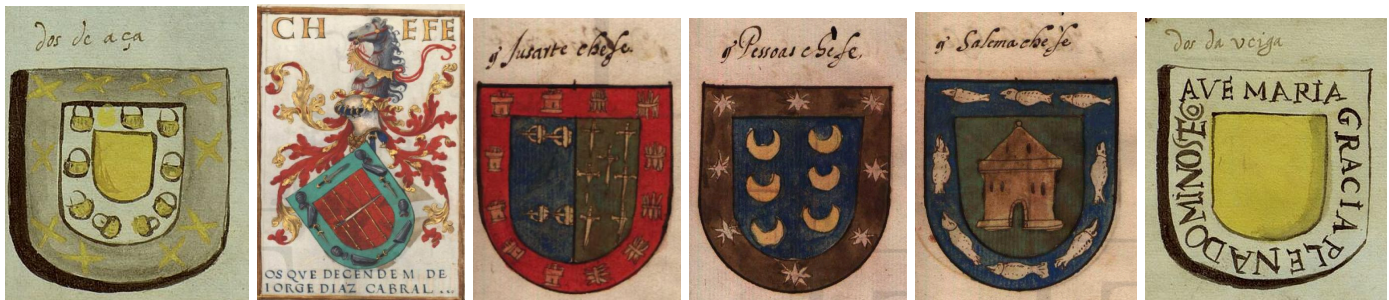 dos de aça
CHEFE
OS QVE DECENDEM DE
IORGE DIAZ CABRAL ...
g̃ Jusarte chefe.
g̃ Pessoas chefe.
g̃ Salema chefe
dos da veiga
AVE MARIA
GRACIA
PLENA DOMINOS TECO